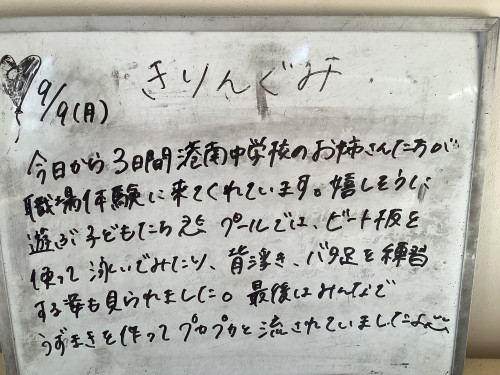 きりんぐみ
9/9(月)
今日から3日間港南中学校のお姉さんたちが
職場体験に来てくれています。嬉しそうに
遊ぶ子どもたち プールでは、ビート板を
使って泳いでみたり、背浮き、バタ足を練習
する姿も見られました。最後はみんなで
うずまきを作ってプカプカと流されていましたよ